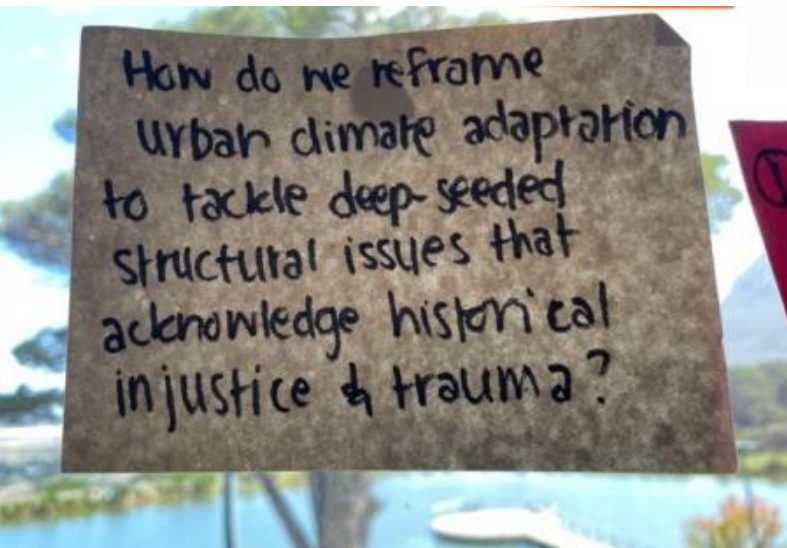 How do we reframe
urban climate adaptation
to tackle deep-seeded
structural issues that
acknowledge historical
injustice & trauma?